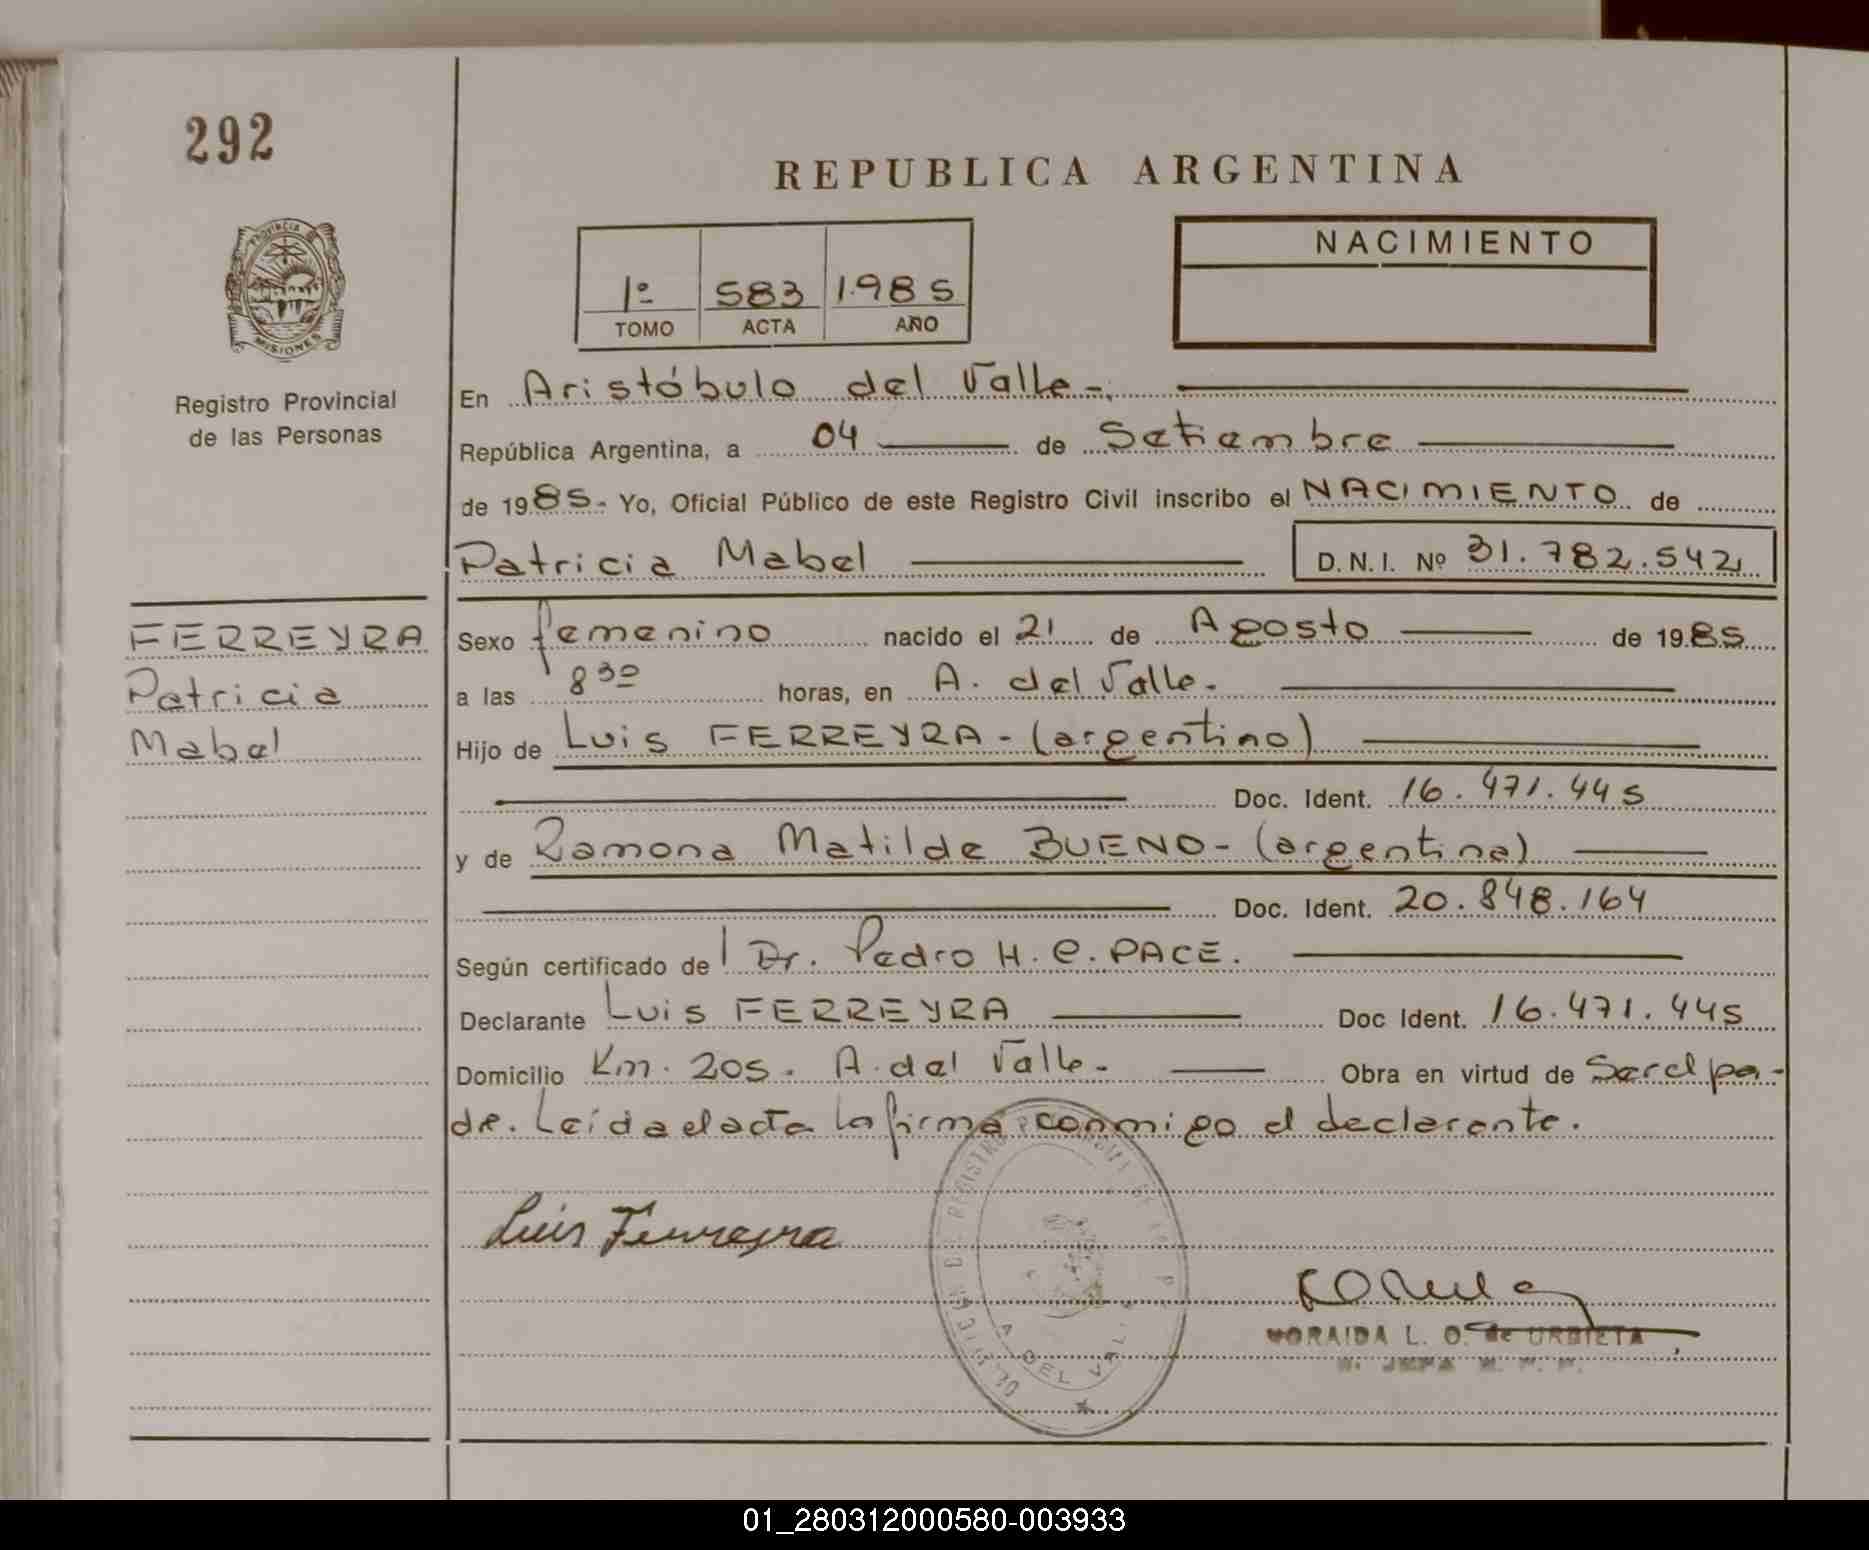 292
REPUBLICA ARGENTINA
NACIMIENTO
1º 583 1985
TOMO ACTA AÑO
PROVINCIA
MISIONES
Registro Provincial
de las Personas
En Aristóbulo del Valle-.
República Argentina, a 04 de Setiembre
de 1985- Yo, Oficial Público de este Registro Civil inscribo el NACIMIENTO de
Patricia Mabel D.N.I. Nº 31.782.542
FERREYRA
Patricia
Mabel
Sexo femenino nacido el 21 de Agosto de 1985
a las 8 30 horas, en A. del Valle.
Hijo de Luis FERREYRA - (argentino)
Doc. Ident. 16.471.445
y de Ramona Matilde BUENO - (argentina)
Doc. Ident. 20.848.164
Según certificado de l Dr. Pedro H. C. PACE.
Declarante Luis FERREYRA Doc Ident. 16.471.445
Domicilio Km. 205. A. del Valle. Obra en virtud de Ser el pa-
dre. Leída el acta la firma conmigo el declarante.
Luis Ferreyra
A. DEL VALLE
MORAIDA L. O. de URBIETA
01_280312000580-003933